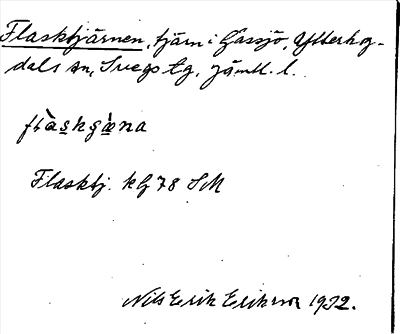 Flasktjärnen, tjärn i Gåssjö, Ytterhog-
dals sn, Svegs tg, Jämtl. l.
flàskgæ̀na
Flasktj. kG 78 SM
Nils Erik Erikson 1932.